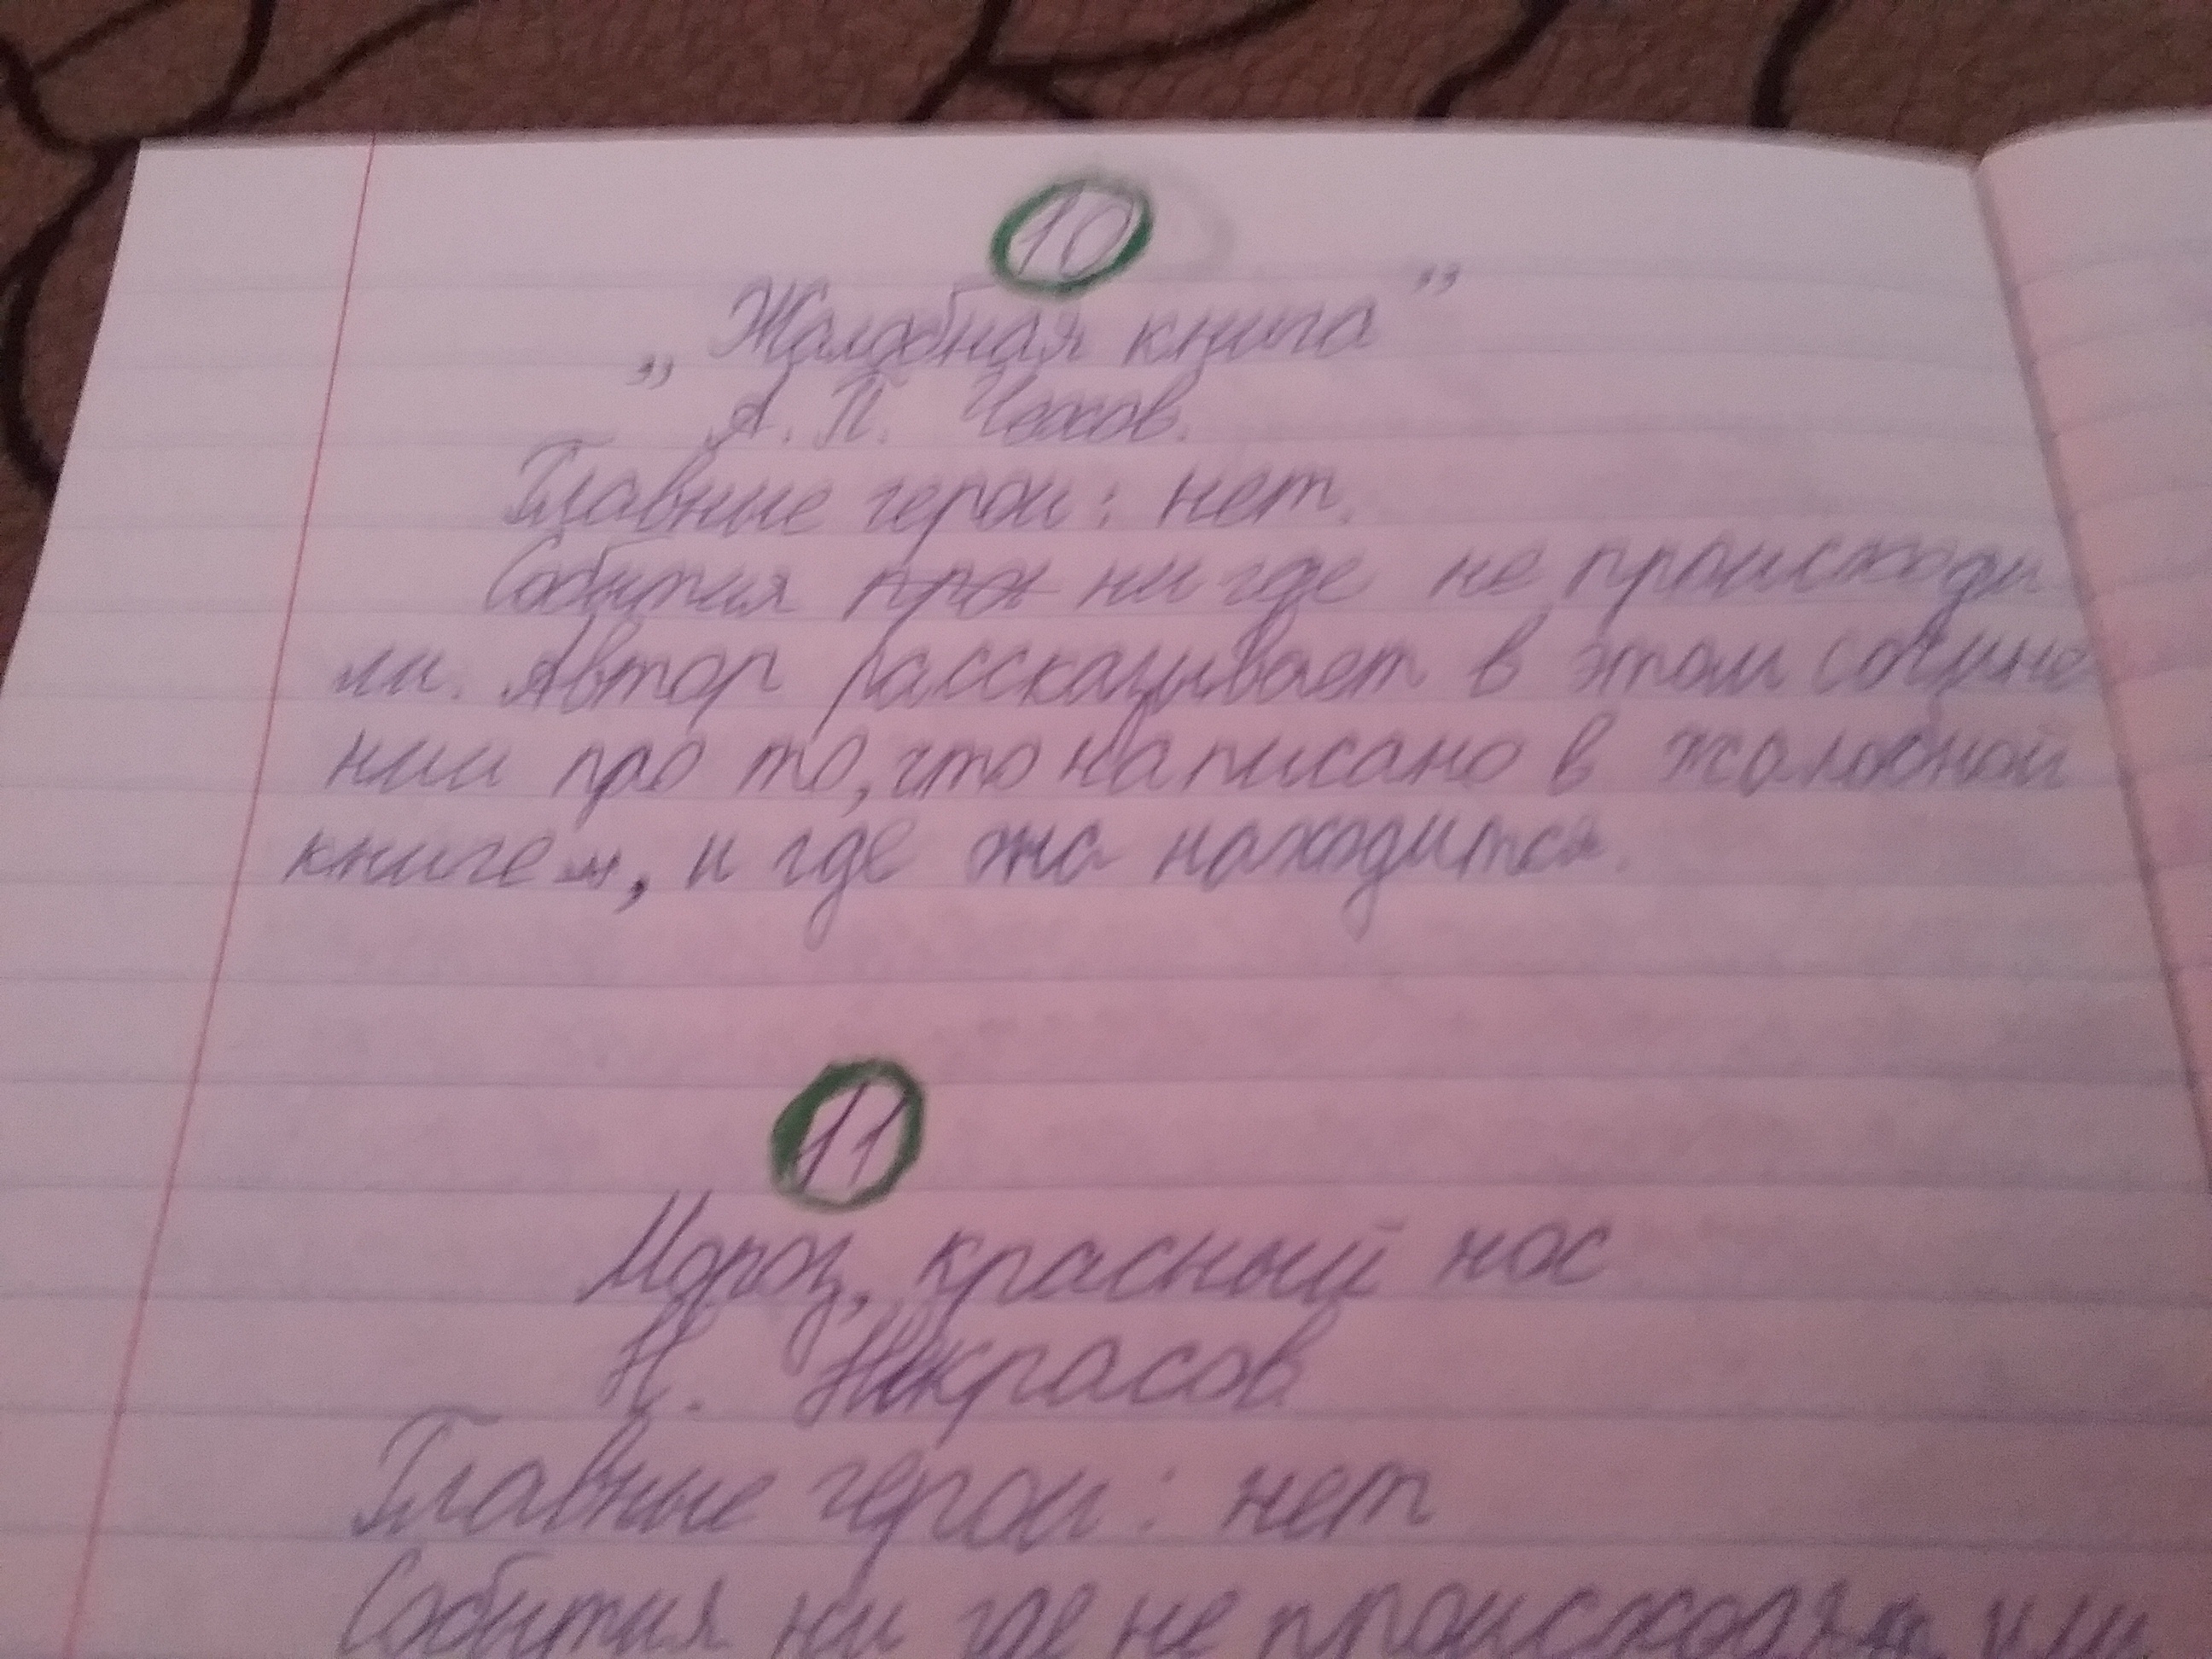 10
„Жалобная книга”
А. П. Чехов.
Главные герои: нет.
События про ни где не происходи
ли. Автор рассказывает в этом сочине
нии про то, что написано в жалобной
книге, и где она находится.
11
Мороз, красный нос
Н. Некрасов
Главные герои: нет
События ни где не